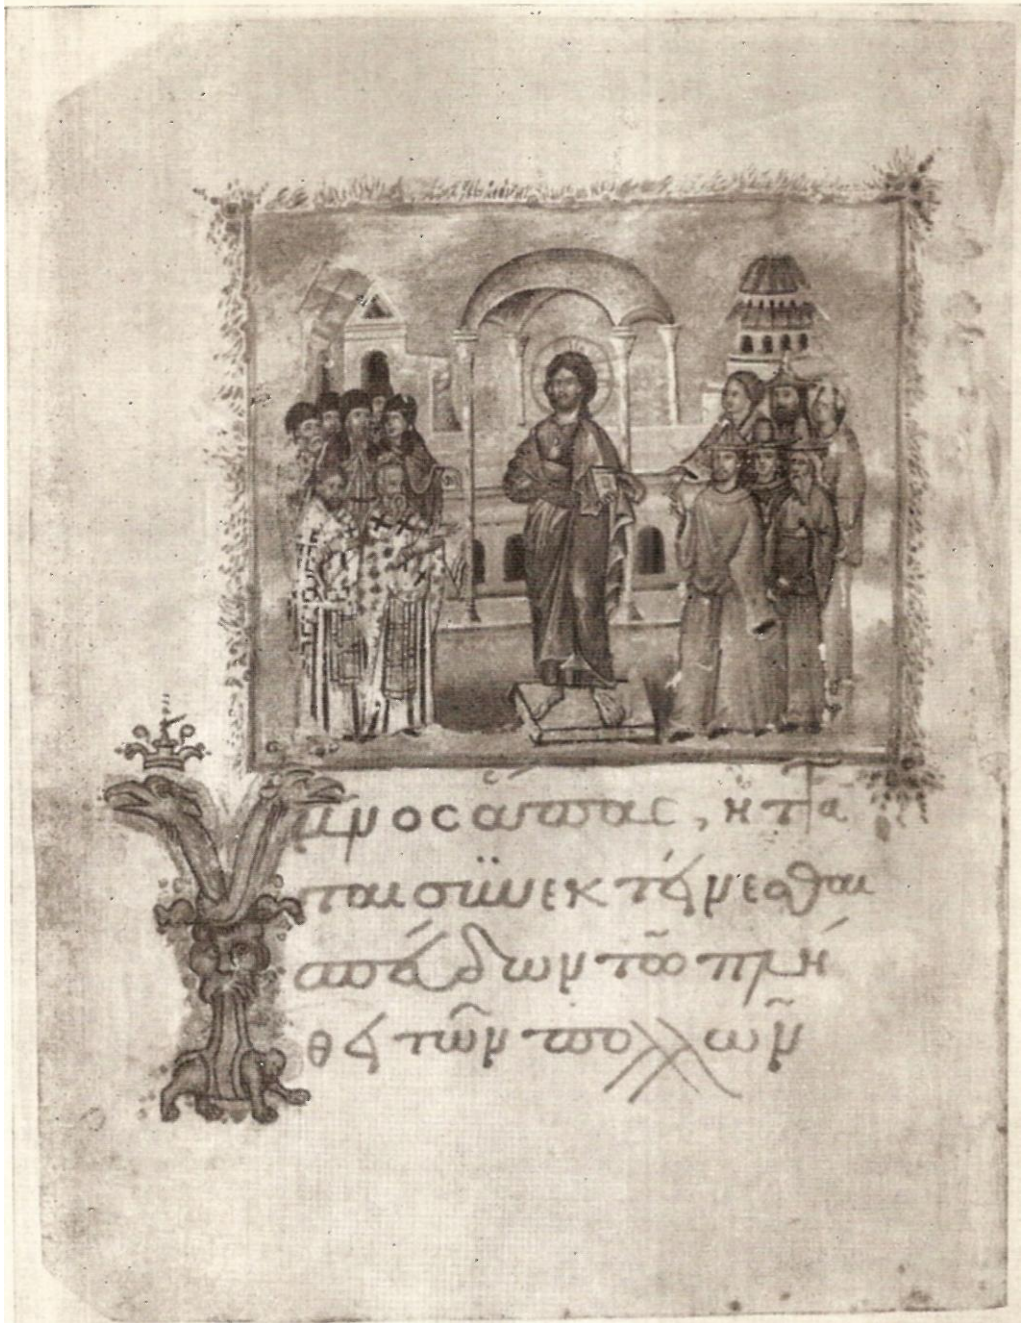 Ὕμνος ἅπας, ἡττᾶ
ται σϋνεκτείνεσθαι
σπεύδων τῶ πλή
θει τῶν πολλῶν